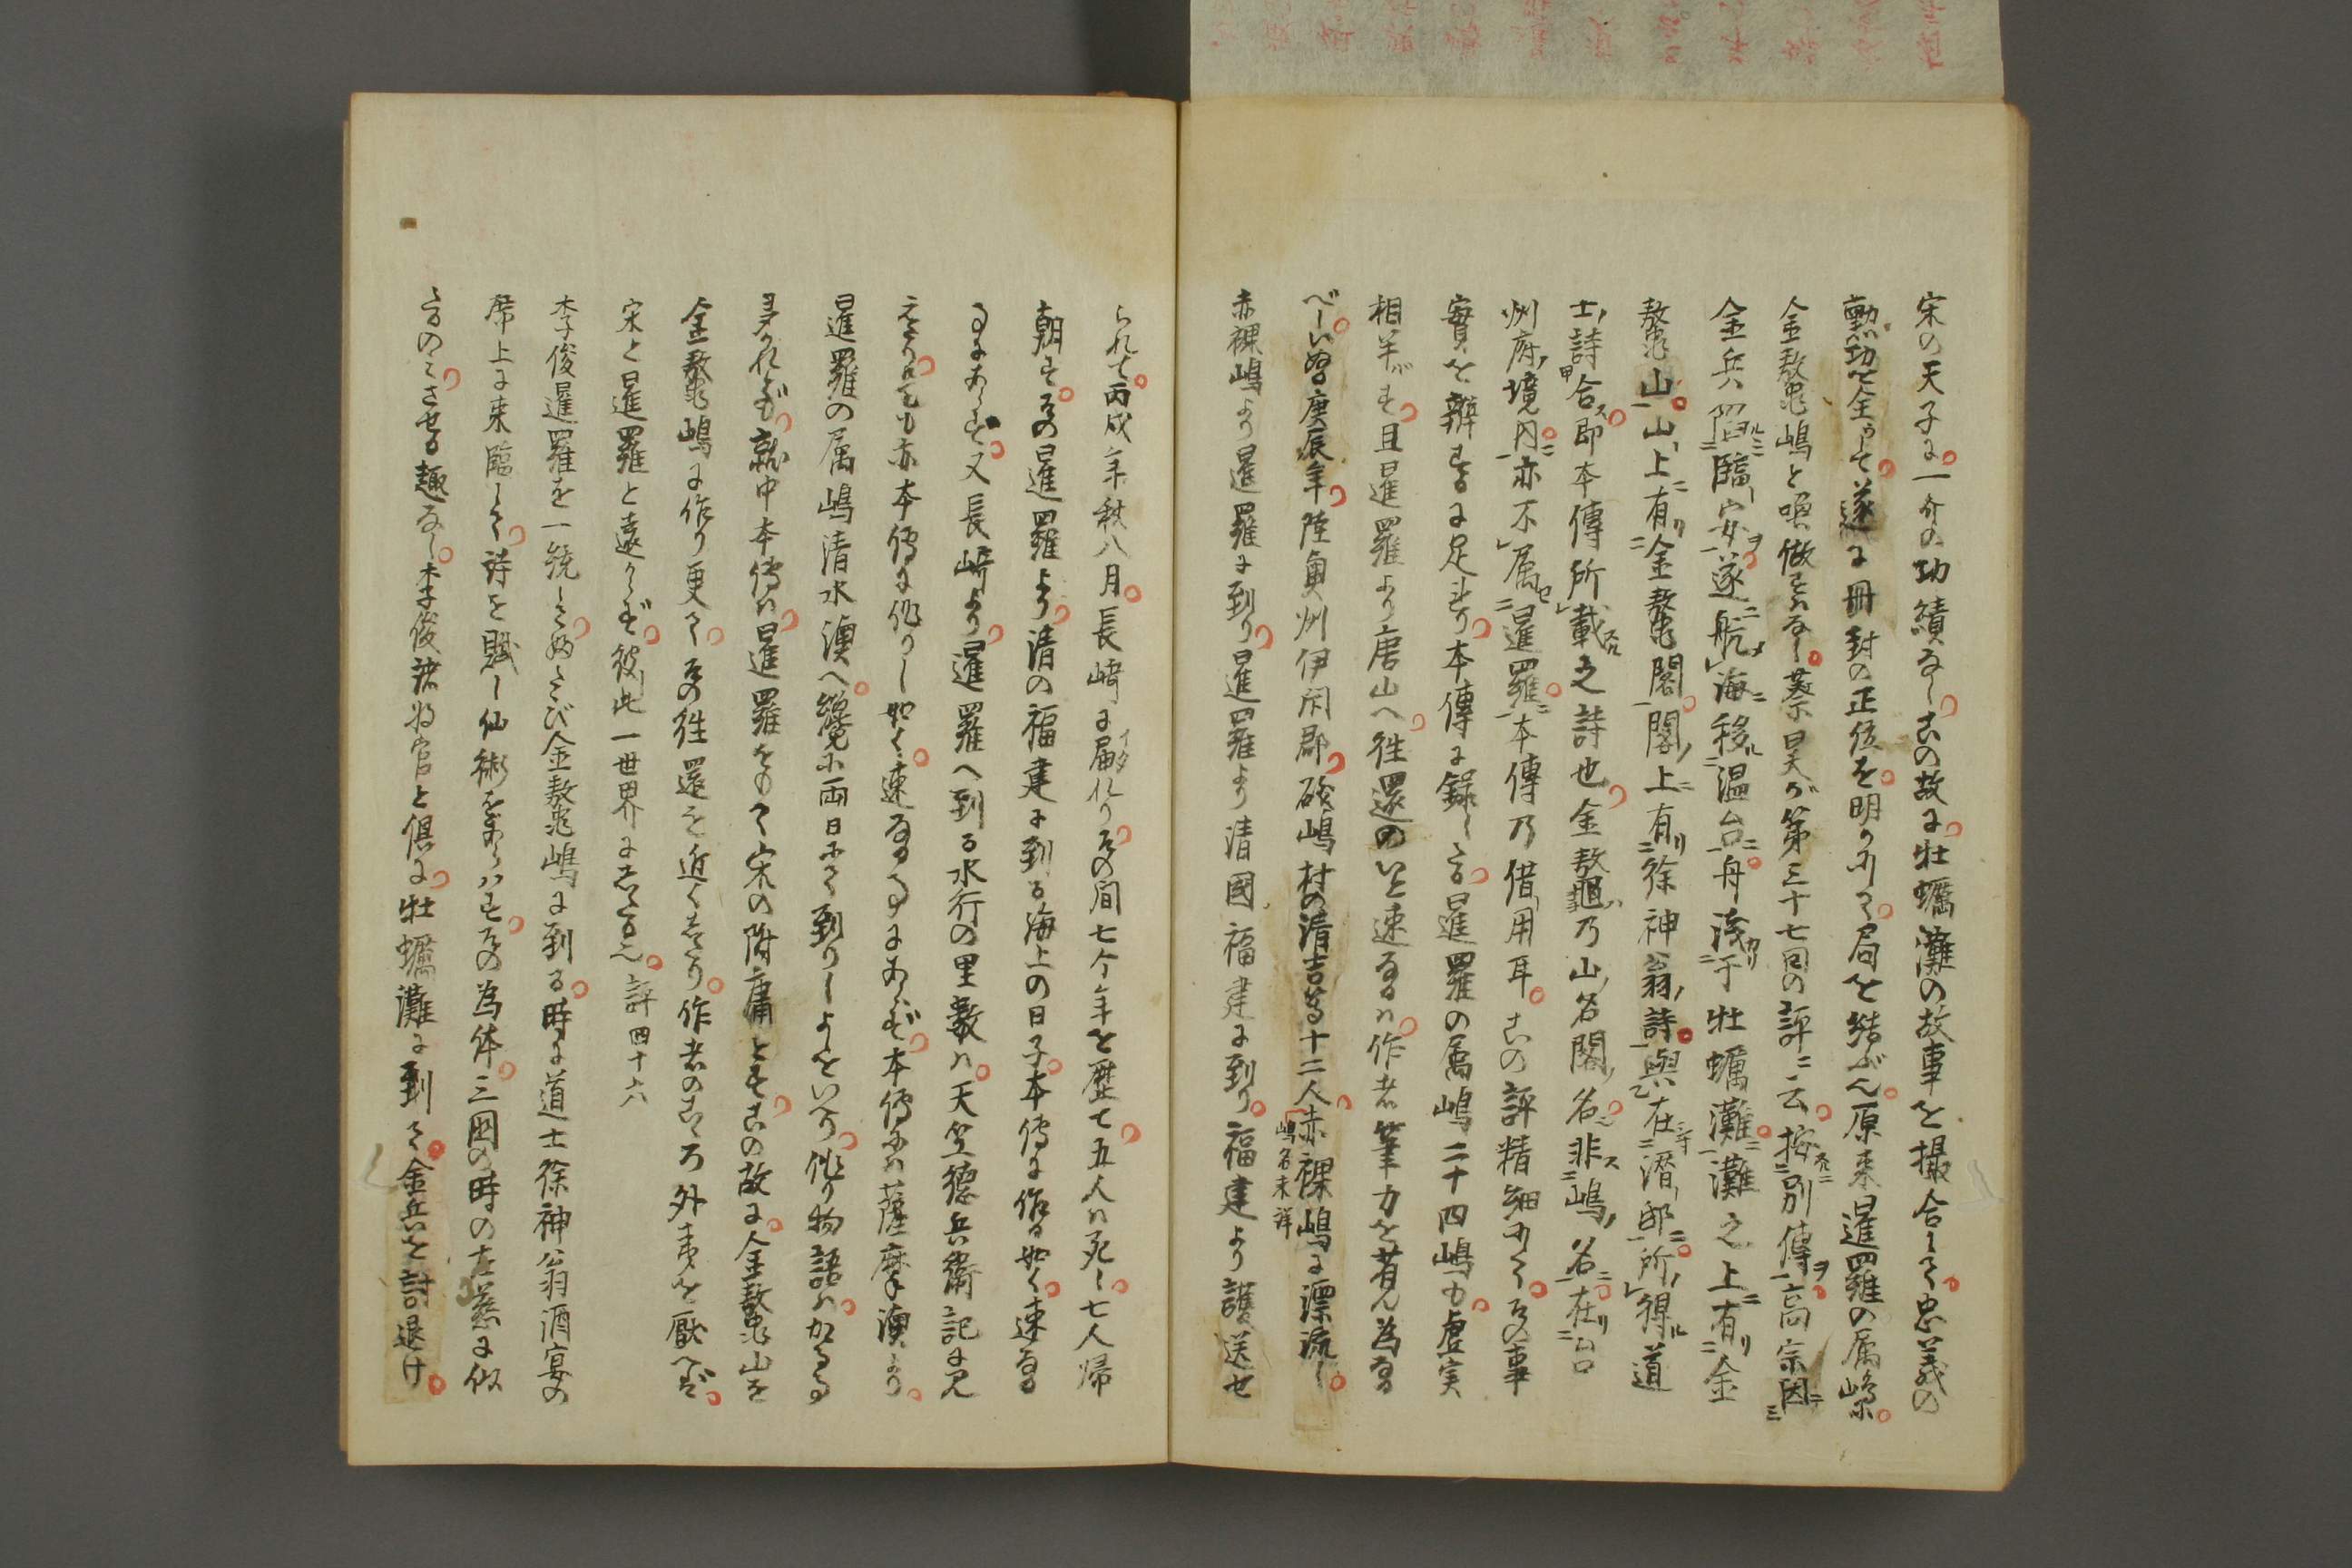 宋の天子に一介の功績なし。この故に牡蠣灘の故事を撮合して忠義の
勲功を全うして。遂に冊封の正位を。明かにして。局を結べん。原来暹羅の属嶋に。
金鰲嶋と喚做すはなし。蔡昊が第三十七回の評ニ云。按別傳。高宗因
金兵陷臨安。遂航海移温台。舟淺于牡蠣灘。灘之上有金
鰲山。山上有金鰲閣。閣上有徐神翁詩。與在潜邸所得道
士詩合。即本傳所載之詩也。金鰲乃山名閣名。非嶋名。在台
州府境内。亦不属暹羅。本傳乃借用耳。この評精細にして。その事
實を辨するに足れり。本傳に録したる。暹羅の属嶋二十四嶋も。虚実
相半ばす。且暹羅より唐山へ。往還のいと速なるは。作者筆力を著んためなる
べし。いぬる庚辰年。陸奥州伊閑郡。礒嶋村の清吉等十二人。赤裸嶋に漂流し。
嶋名未詳
赤裸嶋より暹羅に到り。暹羅より清國福建に到り。福建より護送せ
られて。丙戌年秋八月。長崎に届れり。その間七ケ年を歴て。五人は死し。七人帰
朝す。その暹羅より。清の福建に到る海上の日子。本傳に作る如く。速なる
事にあらず。又長崎より。暹羅へ到る水行の里數は。天竺徳兵衛記に見
えたり。是も亦本傳に作りし如く。速なる事にあらず。本傳には薩摩澳より。
暹羅の属嶋清水澳へ。纔に両日にして到りしよしをいへり。作り物語は。かゝる事
多かれども。就中本傳は。暹羅をもて宋の附庸とす。この故に。金鰲山を
金鰲嶋に作り更て。その往還を近くしたり。作者のこゝろ外夷を厭へば。
宋と暹羅と遠からず。彼此一世界にしたる也。評四十六
李俊暹羅を一統して。ふたゝび金鰲嶋に到る。時に道士徐神翁酒宴の
席上に来臨して。詩を賦し仙術をあらはす。その為体。三国の時の左慈に似
たるのみ。させる趣なし。李俊諸將官と倶に。牡蠣灘に到りて。金兵を討退け。